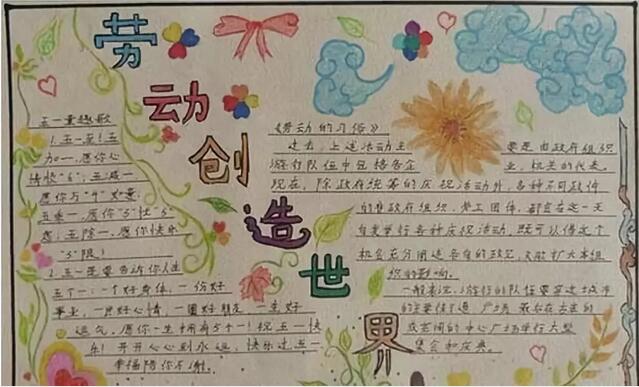 劳动创造世界
五一童趣歌
1.五一至!五
加一,愿你心
情快"6";五减一
愿你与"4"如意;
五乘一,愿你"5"忧"5"
虑;五除一,愿你快乐
"5"限!
2.五一是要告诉你人生
五个一:一个好身体,一份好
事业,一片好心情,一圈好朋友,一生好
运气,愿你一生拥有5个一!祝五一快
乐!开开心心到永远,快乐过五一
幸福陪你不离。
《劳动的习俗》
过去,上述活动主要是由政府组织
游行队伍中包括各企业,机关的代表。
现在,除政府统筹的庆祝活动外,各种不同政件
的非政府组织、劳工团体,都会在这一天
自发举行各种庆祝活动,既可以借这个
机会充分阐述各自的政见,又能扩大本组
织的影响。
一般来说,游行的队伍要穿过城市
的主要街道、广场,最后在古老的
或空阔的中心广场举行大型
集会和庆典。